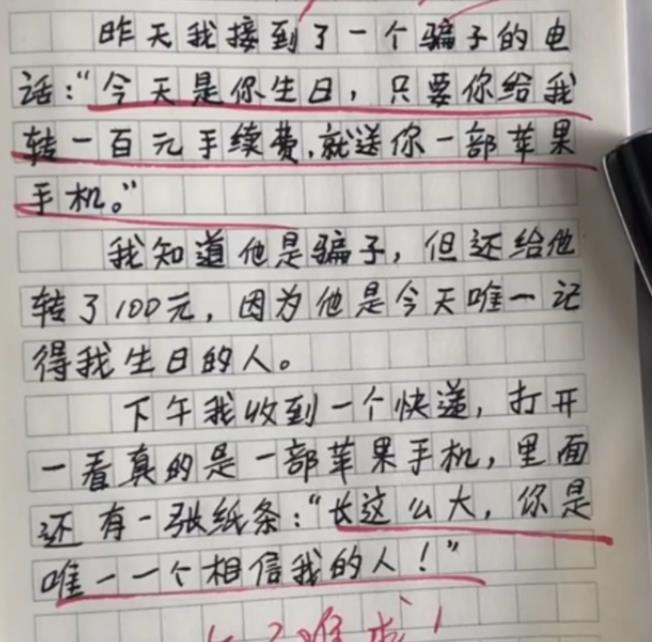 昨天我接到了一个骗子的电
话:“今天是你生日，只要你给我
转一百元手续费,就送你一部苹果
手机。”
我知道他是骗子，但还给他
转了100元，因为他是今天唯一记
得我生日的人。
下午我收到一个快递，打开
一看真的是一部苹果手机，里面
还有一张纸条:“长这么大，你是
唯一一个相信我的人！”